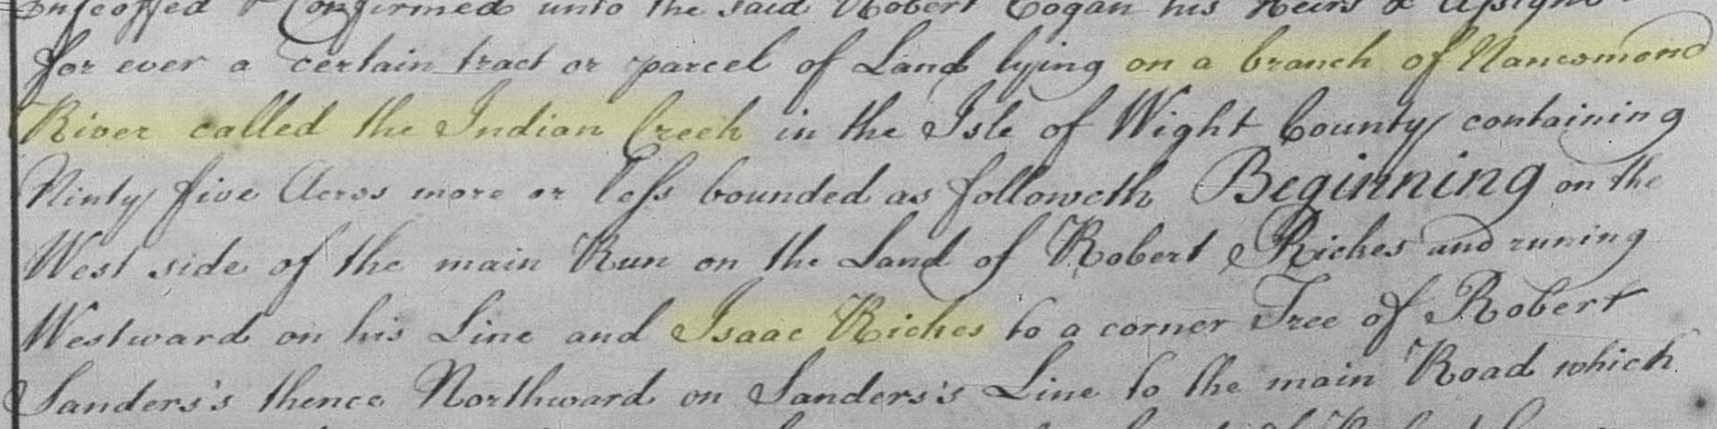 Confirmed unto the said Robert Cogan his Heirs & Assigns
for ever a certain tract or parcel of Land lying on a branch of Nancomond
River called the Indian Creek in the Isle of Wight County containing
Ninty five Acres more or less bounded as followeth Beginning on the
West side of the main Run on the Land of Robert Riches and runing
Westward on his Line and Isaac Riches to a corner Tree of Robert
Sanders's thence Northward on Sanders's Line to the main Road which